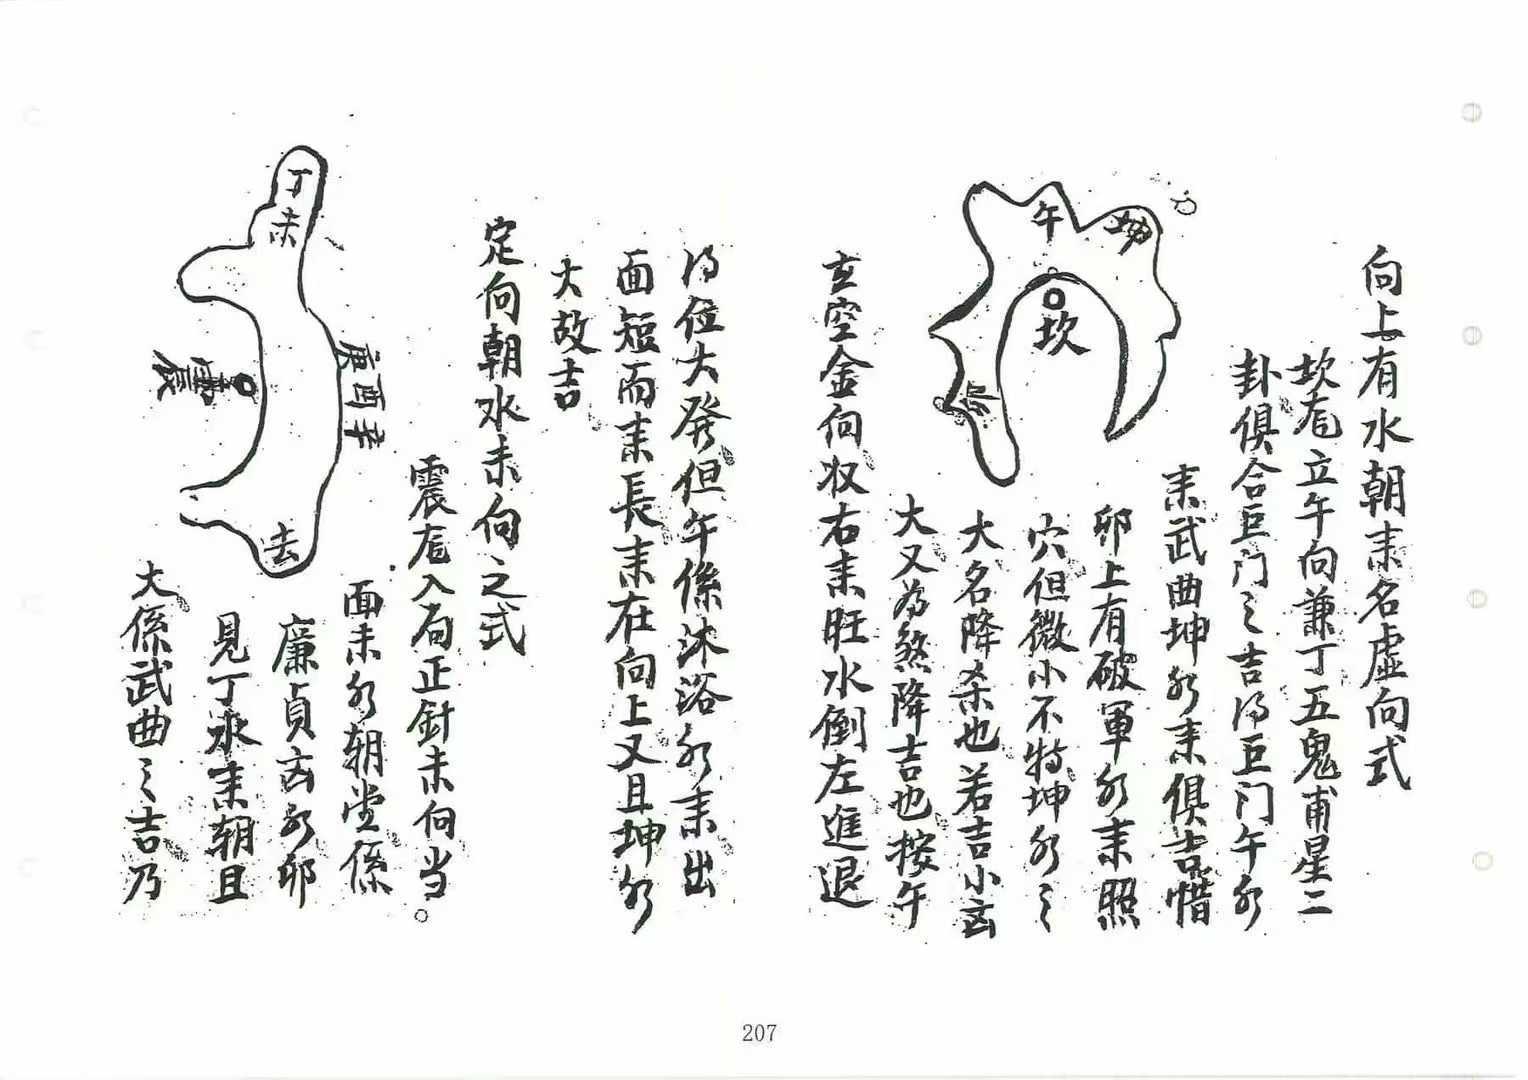 向上有水朝耒名虛向式
坎庬立午向兼丁五鬼甫星二
卦俱合巨门之吉得巨门午水
耒武曲坤水耒俱吉惜
卯上有破軍水耒照
穴但微小不特坤水之
大名降杀也若吉小凶
大又為煞降吉也按午
玄空金向收右耒旺水倒左進退
午
坎
卯
得位大発但午係沐浴水耒出
面短而耒長耒在向上又且坤水
大故吉
定向朝水未向之式
震庬入局正針未向当
面未水朝堂係
廉貞凶水卯
見丁水耒朝且
大係武曲之吉乃
丁未
庚酉辛
震
去
207